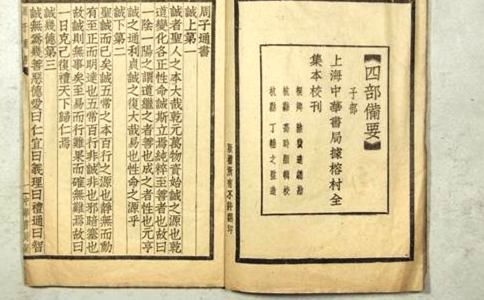 四部備要
子部
上海中華書局據榕村全
集本校刊
桐鄉 陸費逵總勘
杭縣 高時顯輯校
杭縣 丁輔之監造
版權所有不許翻印
周子通書
誠上第一
誠者聖人之本大哉乾元萬物資始誠之源也乾
道變化各正性命誠斯立焉純粹至善者也故曰
一陰一陽之謂道繼之者善也成之者性也元亨
誠之通利貞誠之復大哉易也性命之源乎
誠下第二
聖誠而已矣誠五常之本百行之源也靜無而動
有至正而明達也五常百行非誠非也邪暗塞也
故誠則無事矣至易而行難果而確無難焉故曰
一日克己復禮天下歸仁焉
誠幾德第三
誠無為幾善惡德愛曰仁宜曰義理曰禮通曰智